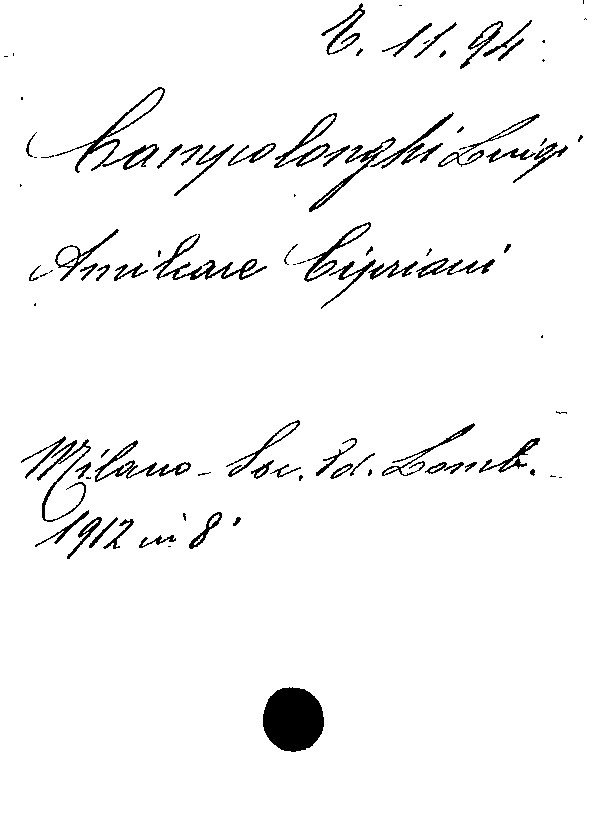 E. 11. 94
Campolonghi Luigi
Amilcare Cipriani
Milano - Soc. Ed. Lomb. -
1912 in 8°